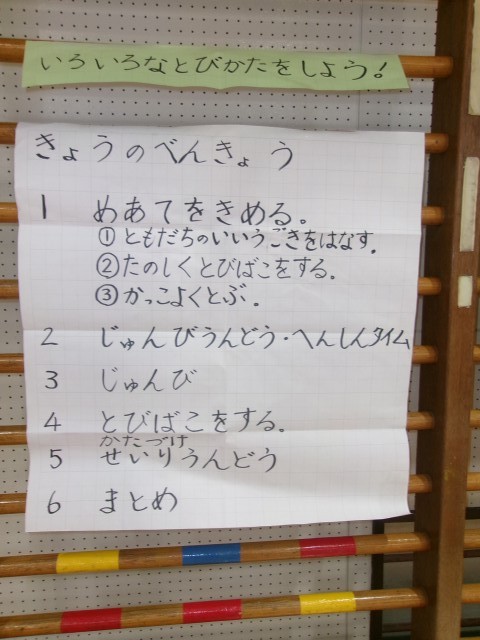 いろいろなとびかたをしよう!
きょうのべんきょう
1 めあてをきめる。
①ともだちのいいうごきをはなす。
②たのしくとびばこをする。
③かっこよくとぶ。
2 じゅんびうんどう・へんしんタイム
3 じゅんび
4 とびばこをする。
かたづけ
5 せいりうんどう
6 まとめ